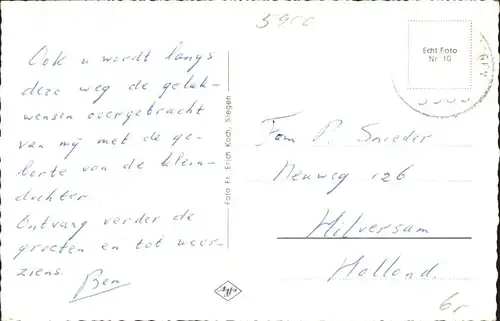 5900
Ook u wordt langs
deze weg de geluk-
wensen overgebracht
van mij met de ge-
borte van de klein-
dochter.
Ontvang verder de
groeten en tot weer-
ziens.
Ben
Foto Fr. Erich Koch, Siegen
Agfa
Echt Foto
Nr. 10
Fam P. Snieder
Neuweg 126
Hilversum
Holland.
6r